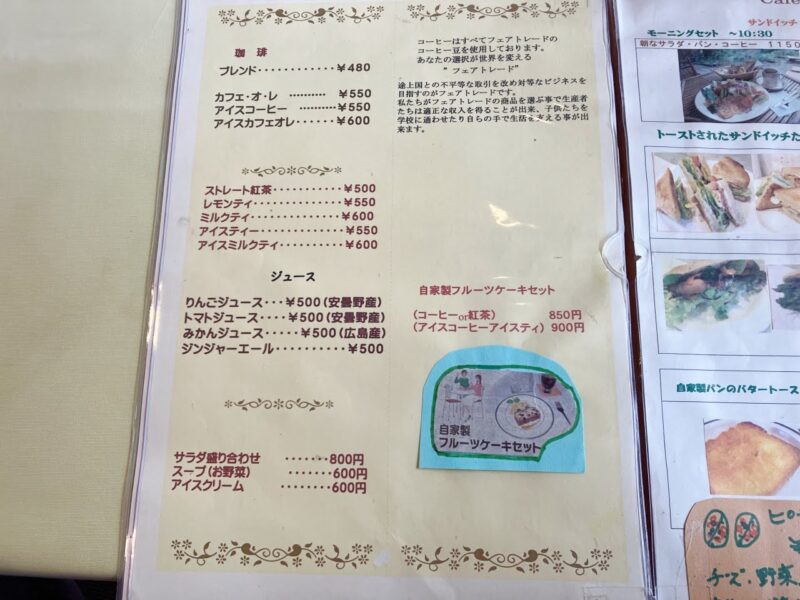 珈 琲
ブレンド・・・・・・・・・・・・￥480
カフェ・オ・レ ・・・・・・・・・・ ￥550
アイスコーヒー ・・・・・・・・・・￥550
アイスカフェオレ・・・・・・￥600
コーヒーはすべてフェアトレードの
コーヒー豆を使用しております。
あなたの選択が世界を変える
“ フェアトレード”
途上国との不平等な取引を改め対等なビジネスを
目指すのがフェアトレードです。
私たちがフェアトレードの商品を選ぶ事で生産者
たちは適正な収入を得ることが出来、子供たちを
学校に通わせたり自らの手で生活を支える事が出
来ます。
ストレート紅茶・・・・・・・・・・・￥500
レモンティ・・・・・・・・・・・・・￥550
ミルクティ・・・・・・・・・・・・・￥600
アイスティー・・・・・・・・・・・・￥550
アイスミルクティ・・・・・・・・・￥600
ジュース
りんごジュース・・・￥500(安曇野産)
トマトジュース・・・・￥500(安曇野産)
みかんジュース・・・・・￥500(広島産)
ジンジャーエール・・・・・・・・・・￥500
自家製フルーツケーキセット
(コーヒーor紅茶) 850円
(アイスコーヒーアイスティ) 900円
自家製
フルーツケーキセット
サラダ盛り合わせ ・・・・・・・800円
スープ(お野菜) ・・・・・・・600円
アイスクリーム ・・・・・・・・600円
Cafe
サンドイッチ
モーニングセット ～10:30
朝なサラダ・パン・コーヒー 1150
トーストされたサンドイッチた
自家製パンのバタートース
ピ
チーズ・野菜